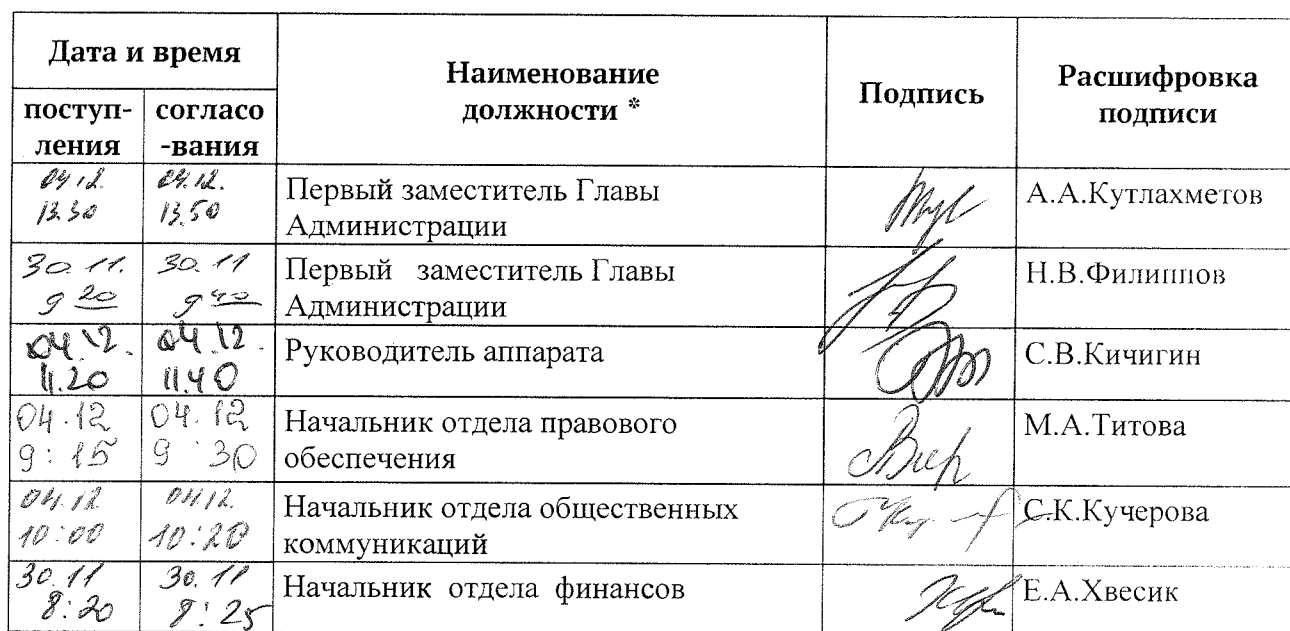 Дата и время
Наименование
должности *
Подпись
Расшифровка
подписи
поступ-
ления
согласо
-вания
04.12.
13.30
04.12.
13.50
Первый заместитель Главы
Администрации
А.А.Кутлахметов
30.11.
9 20
30.11
9 40
Первый заместитель Главы
Администрации
Н.В.Филиппов
04.12.
11.20
04.12.
11.40
Руководитель аппарата
С.В.Кичигин
04.12
9:15
04.12
9:30
Начальник отдела правового
обеспечения
М.А.Титова
04.12
10:00
04.12.
10:20
Начальник отдела общественных
коммуникаций
С.К.Кучерова
30.11
8:20
30.11
8:25
Начальник отдела финансов
Е.А.Хвесик